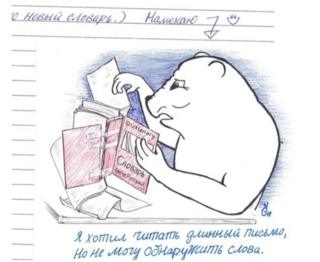 о новый словарь.) Намекаю
Dictionary
Словарь
Я хотил читать длинный письмо,
Но не могу обнаружить слова.